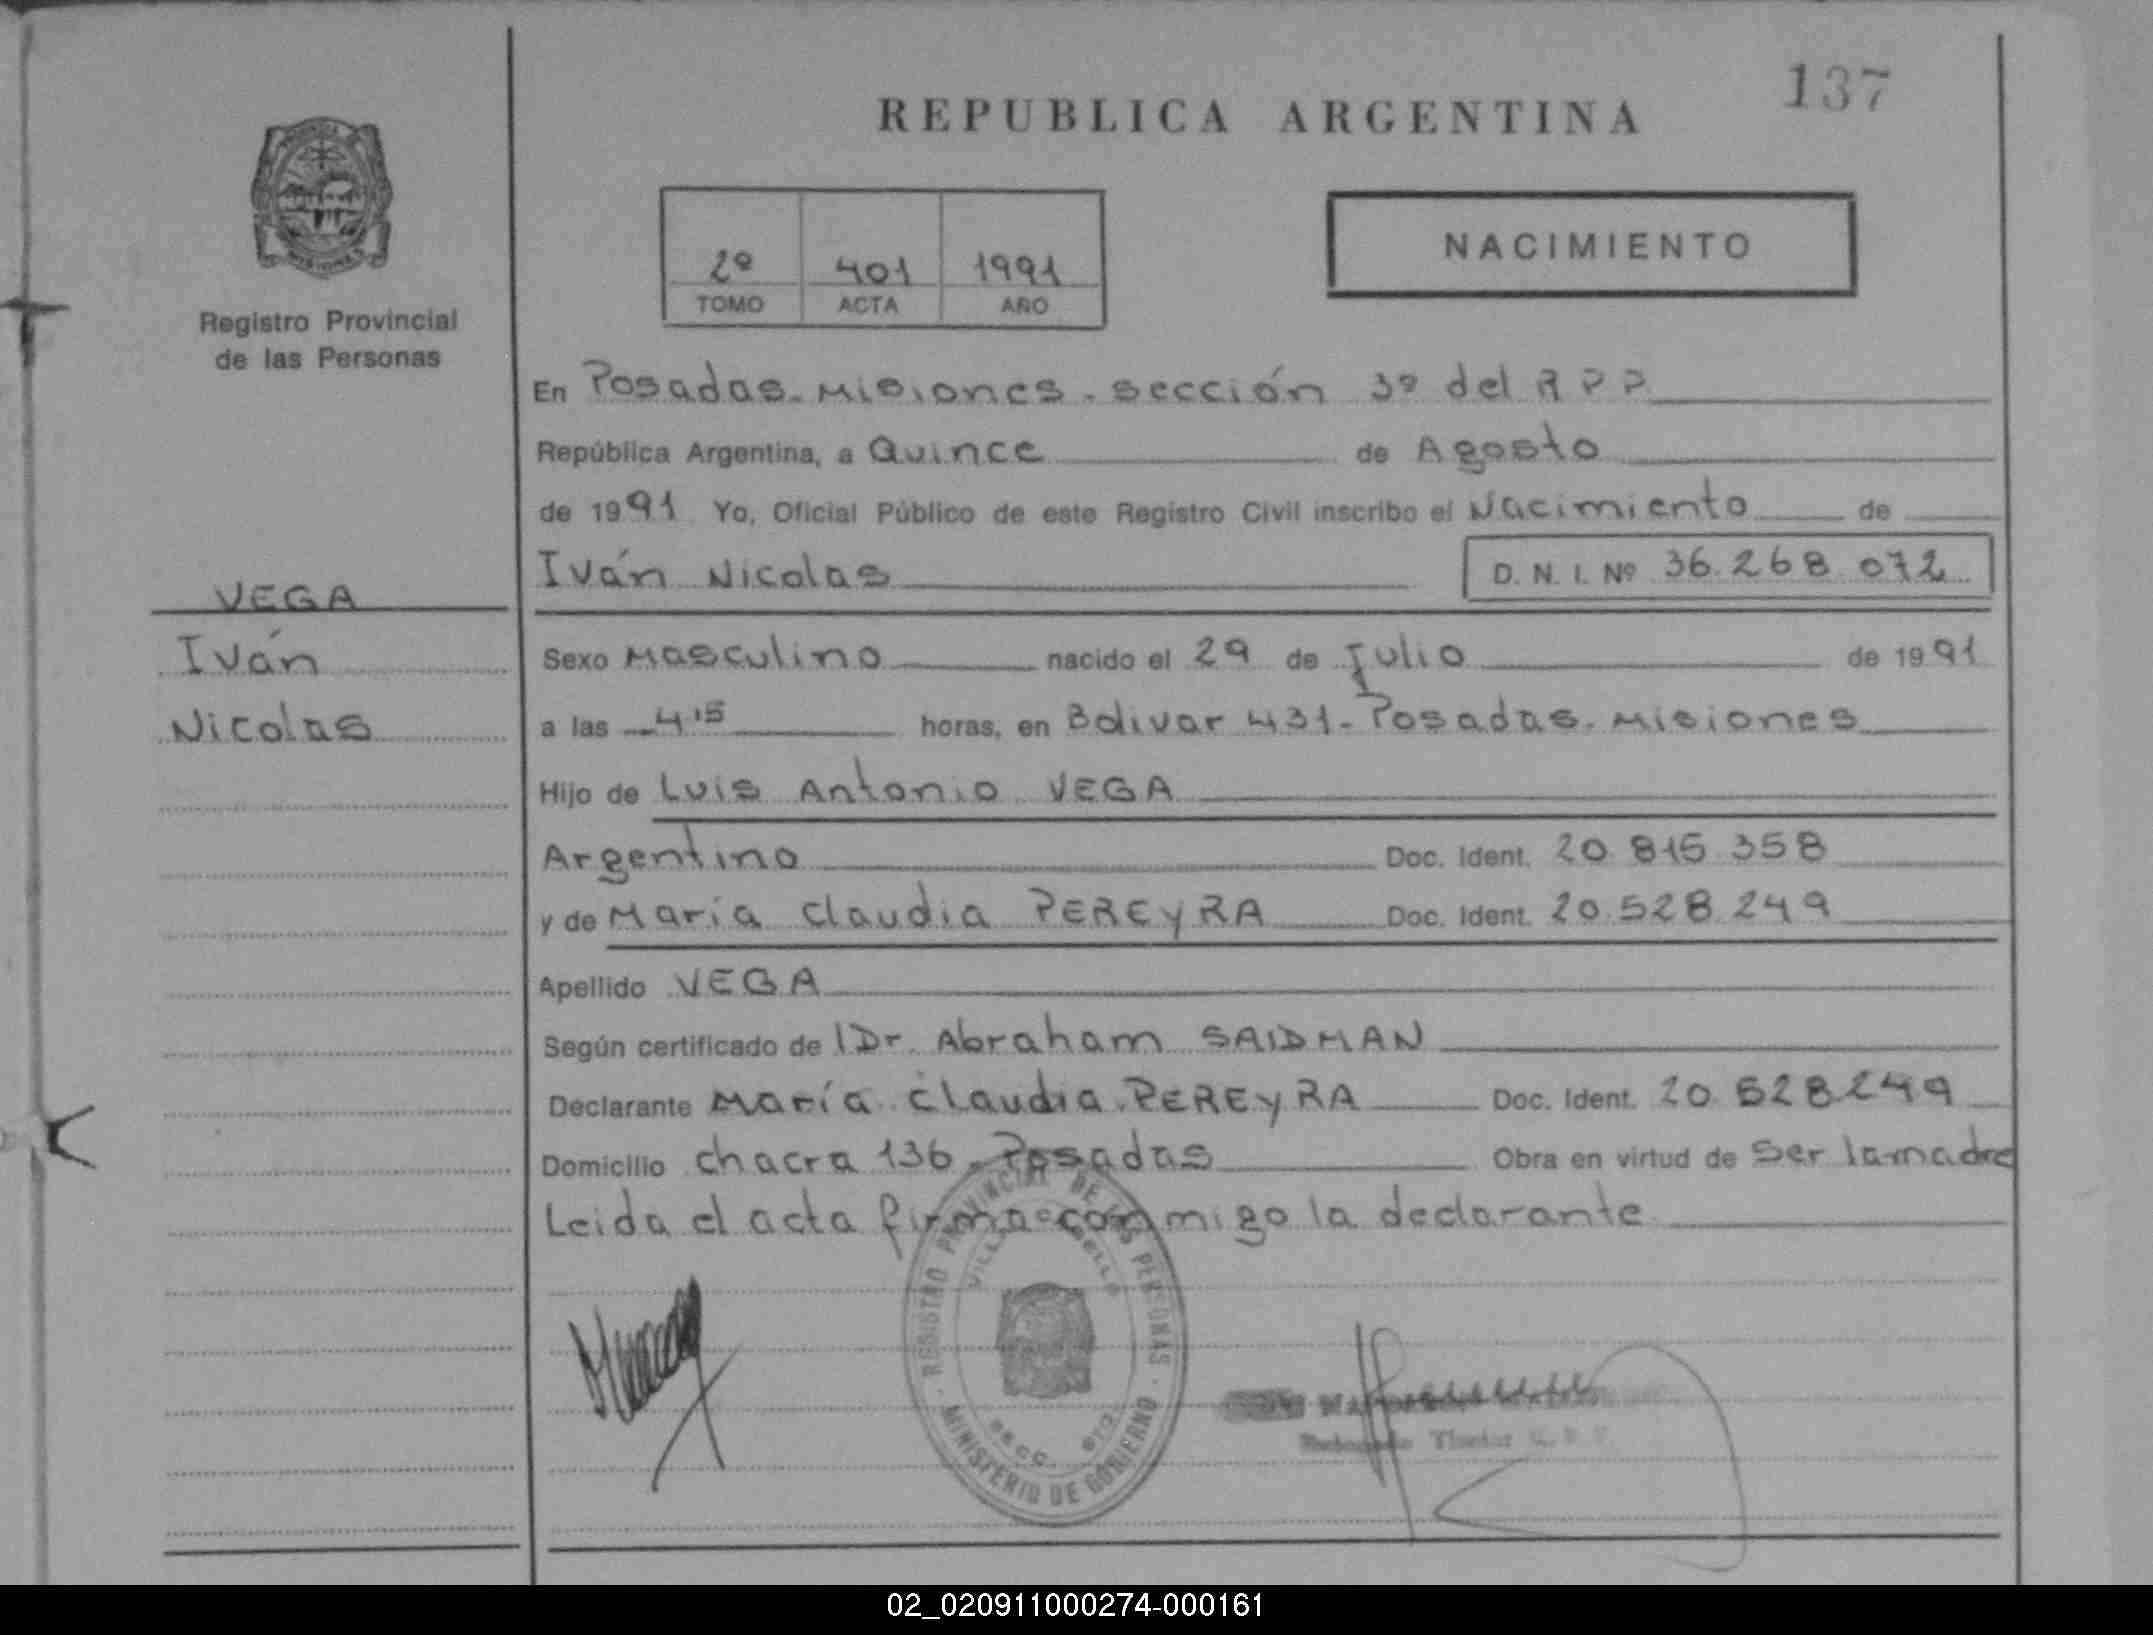 137
REPUBLICA ARGENTINA
2º 401 1991
TOMO ACTA AÑO
NACIMIENTO
Registro Provincial
de las Personas
En Posadas. Misiones. sección 3º del R P P
República Argentina, a Quince de Agosto
de 1991 Yo, Oficial Público de este Registro Civil inscribo el Nacimiento de
Iván Nicolas D. N. I. Nº 36.268.072
VEGA
Iván
Nicolas
Sexo Masculino nacido el 29 de Julio de 1991
a las 4 15 horas, en Bolivar 431 - Posadas. Misiones
Hijo de Luis Antonio VEGA
Argentino Doc. Ident. 20 815 358
y de María Claudia PEREYRA Doc. Ident. 20.528.249
Apellido VEGA
Según certificado de l Dr. Abraham SAIDMAN
Declarante María Claudia PEREYRA Doc. Ident. 20 528249
Domicilio chacra 136. Posadas Obra en virtud de ser la madre
Leida el acta firma con migo la declarante
REGISTRO PROVINCIAL DE LAS PERSONAS
MINISTERIO DE GOBIERNO
02_020911000274-000161